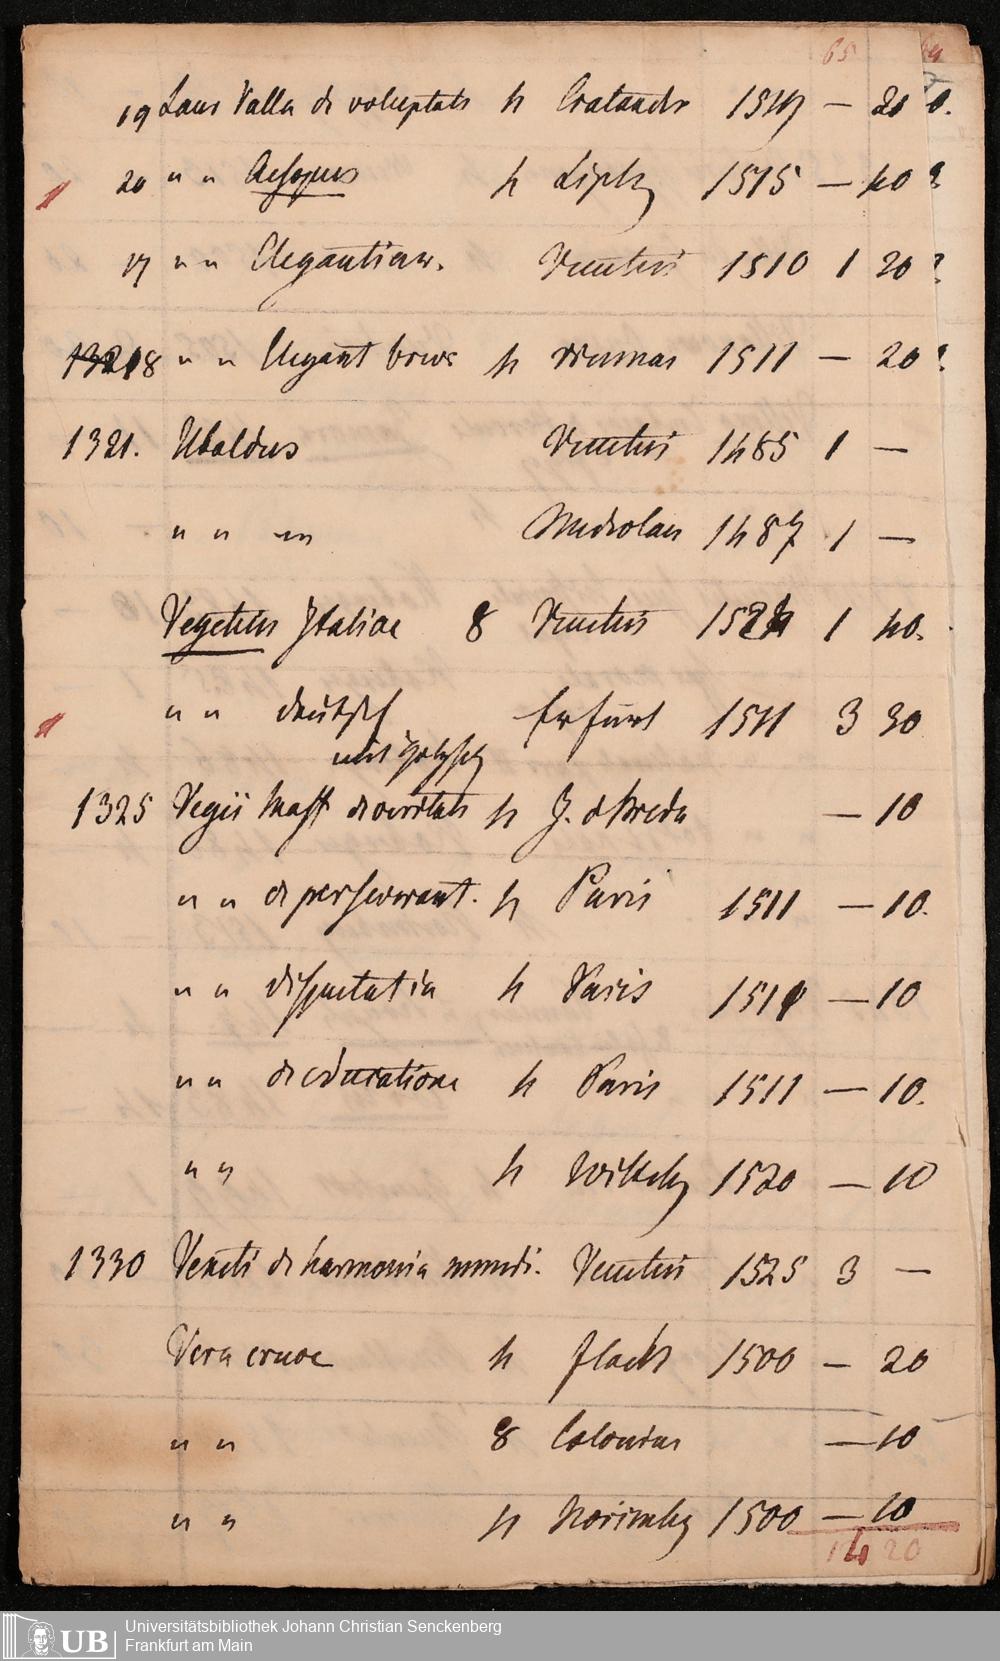 65
19 Laur Valla de voluptate 4 Cratander 1519 — 20
20 " " Aesopus 4 Lipts 1515 — 40
17 " " Elegantiar. Venetiis 1510 1 20
18 " " Elegant breve 4 Viennae 1511 — 20
1321. Ubaldus Venetiis 1485 1 —
" " — Mediolan 1487 1 —
Vegetius Italiae 8 Venetiis 1524 1 40.
" " deutsch Erfurt 1511 3 30
mit Holzsch
1325 Vegii Maff de veritate 4 J. d Breda — 10
" " de perseverant. 4 Paris 1511 — 10.
" " disputatio 4 Paris 1511 — 10
" " de educatione 4 Paris 1511 — 10.
" " 4 Wittebg 1520 — 10
1330 Veneti de harmonia mundi. Venetiis 1525 3 —
Vera crucae 4 Flach 1500 — 20
" " 8 Coloniae — 10
" " 4 Norimbg 1500 — 10
14 20
UB
Universitätsbibliothek Johann Christian Senckenberg
Frankfurt am Main